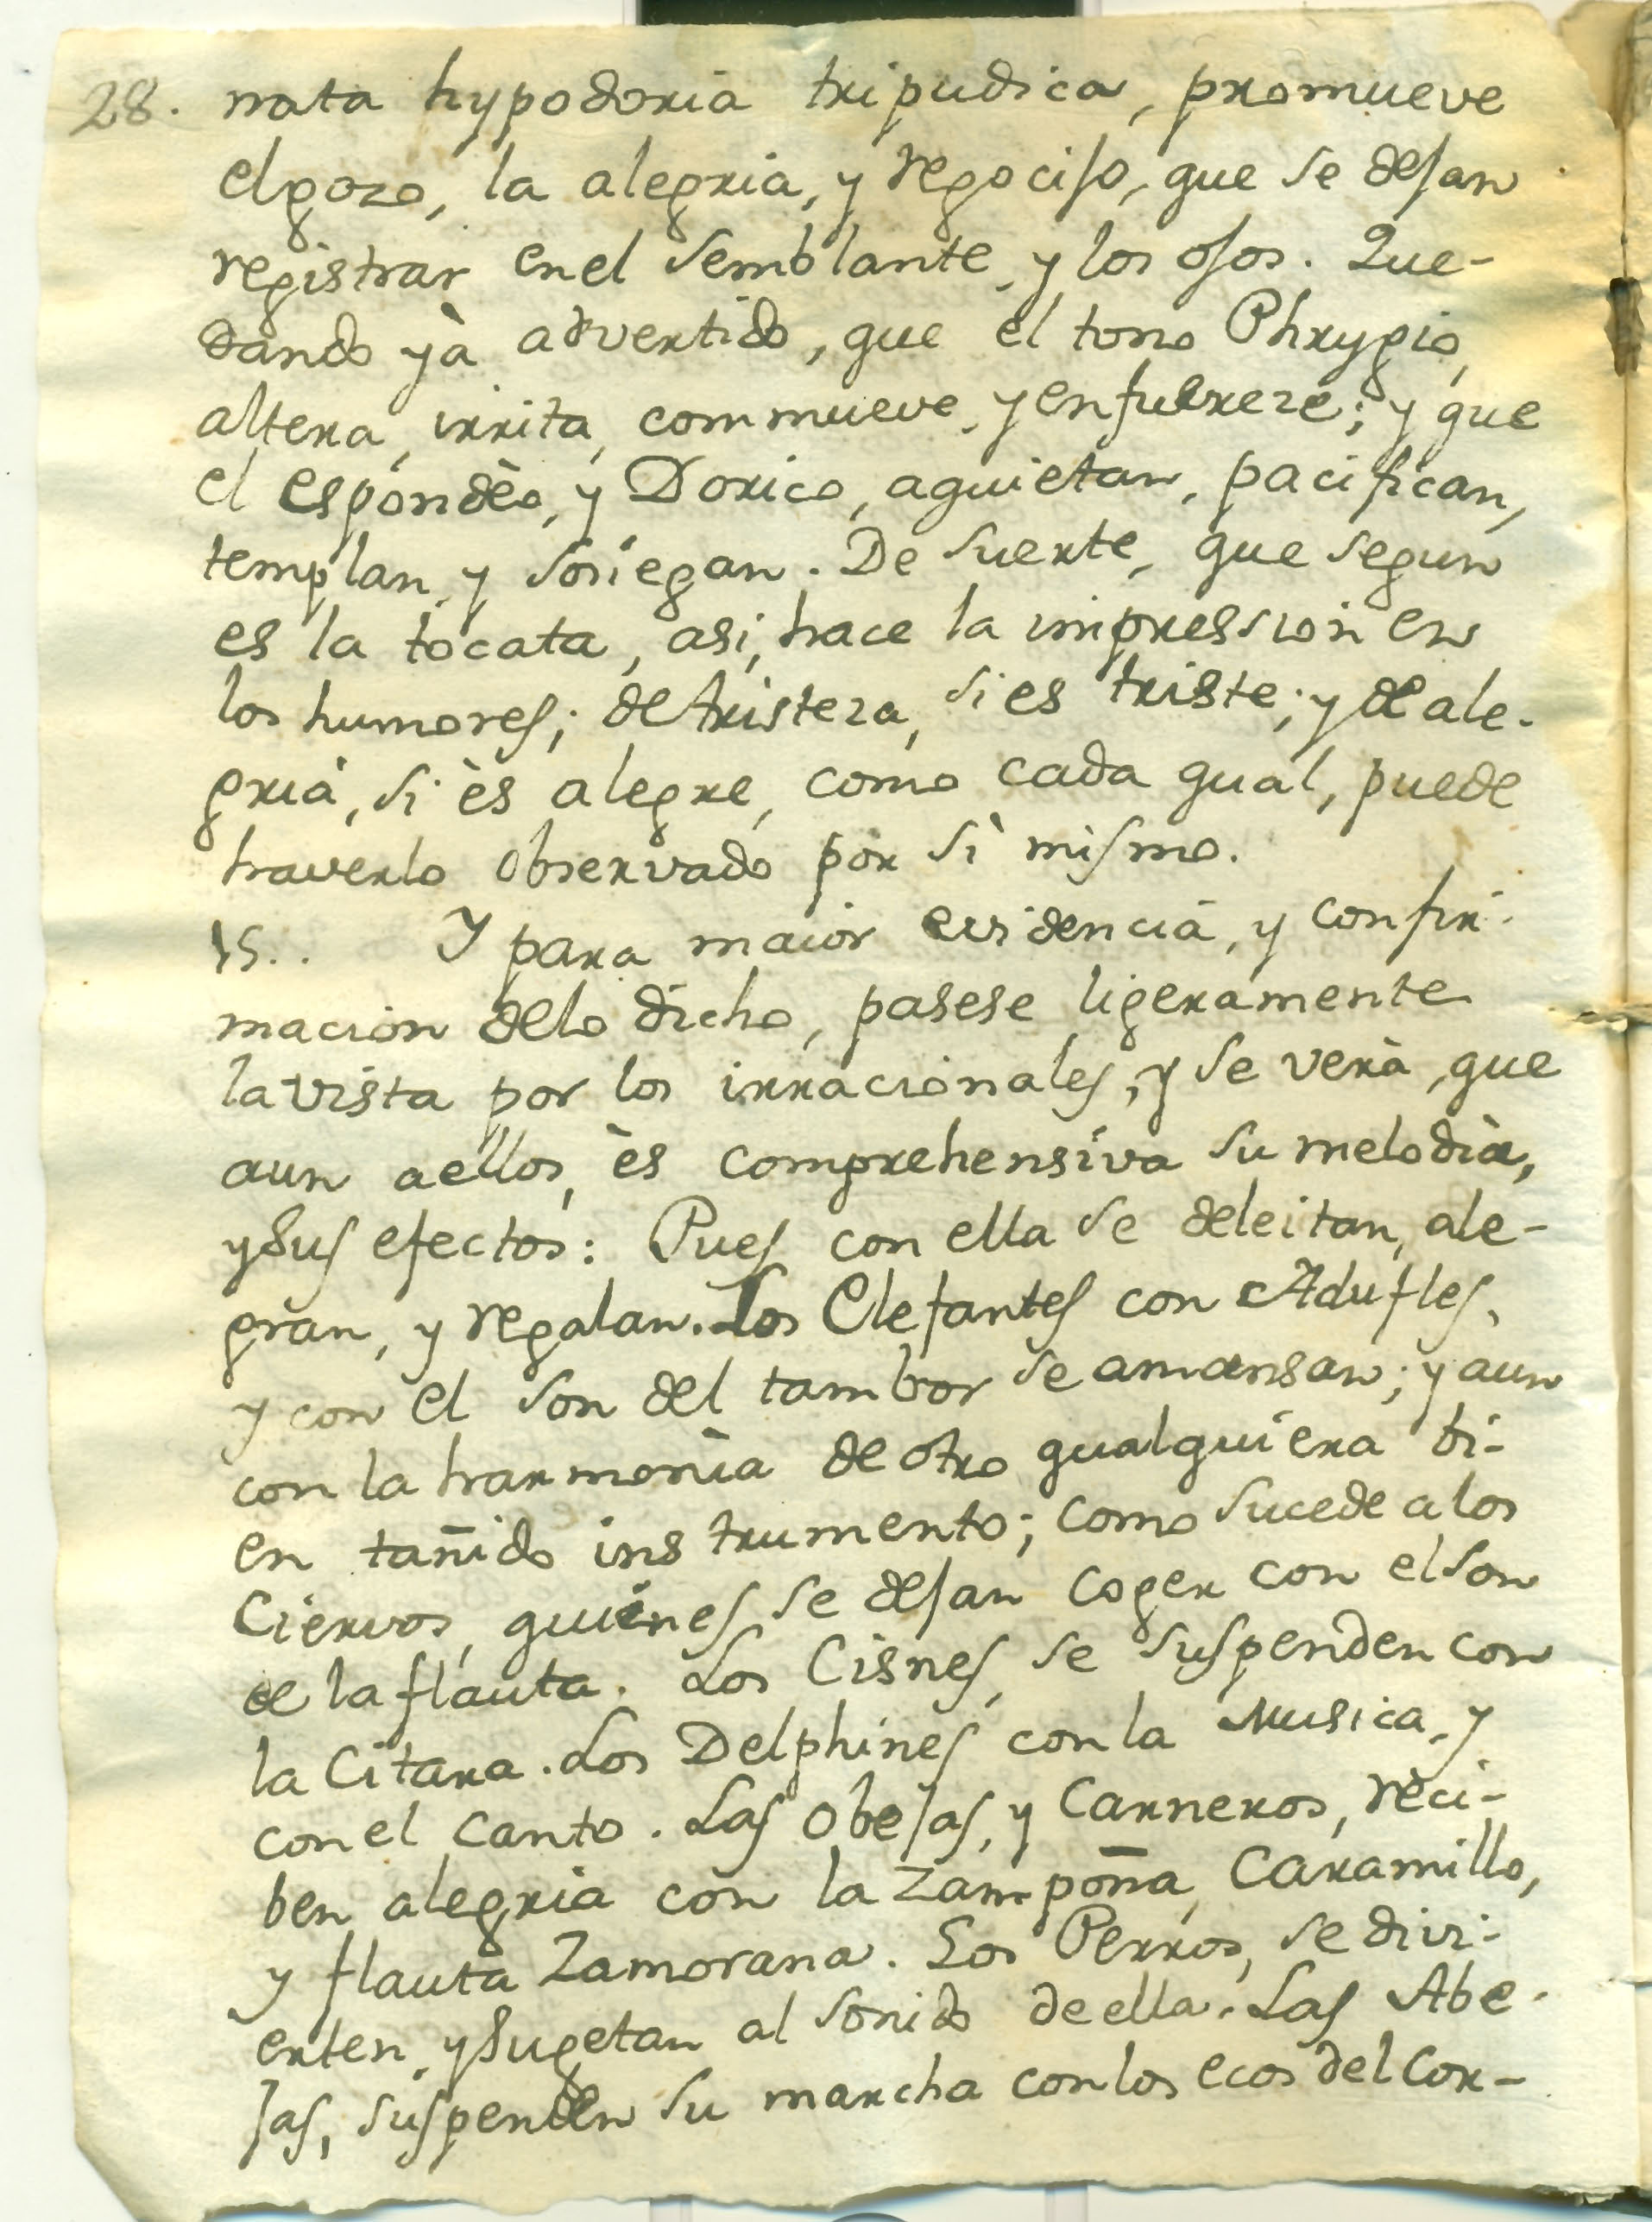 28. nata hypodoria tripudica, promueve
el gozo, la alegria, y regocijo, que se dejan
registrar en el semblante, y los ojos. Que-
dando yà advertido, que el tono Phrygio,
altera, irrita, commueve, y enfuereze; y que
el espondèo, y Dorico, aquietan, pacifican,
templan, y sosiegan. De suerte, que segun
es la tocata, asi, hace la impression en
los humores; de tristeza, si es triste; y de ale-
gria, si ès alegre, como cada qual, puede
haverlo observado por sì mismo.
15.. Y para maior evidencia, y confir-
macion delo dicho, pasese ligeramente
la vista por los irracionales, y se verà, que
aun aellos, ès comprehensiva su melodia,
y sus efectos: Pues con ella se deleitan, ale-
gran, y regalan. Los Elefantes con Adufles,
y con el son del tambor se amansan; y aun
con la harmonia de otro qualquiera bi-
en tañido instrumento; como sucede a los
Ciervos, quienes se dejan coger con el son
de la flauta. Los Cisnes, se suspenden con
la Citara. Los Delphines con la Musica, y
con el canto. Las obejas, y Carneros, reci-
ben alegria con la Zampoña, Caramillo,
y flauta Zamorana. Los Perros, se divi-
erten, y sugetan al sonido de ella. Las Abe-
jas, suspenden su marcha con los ecos del Cor-